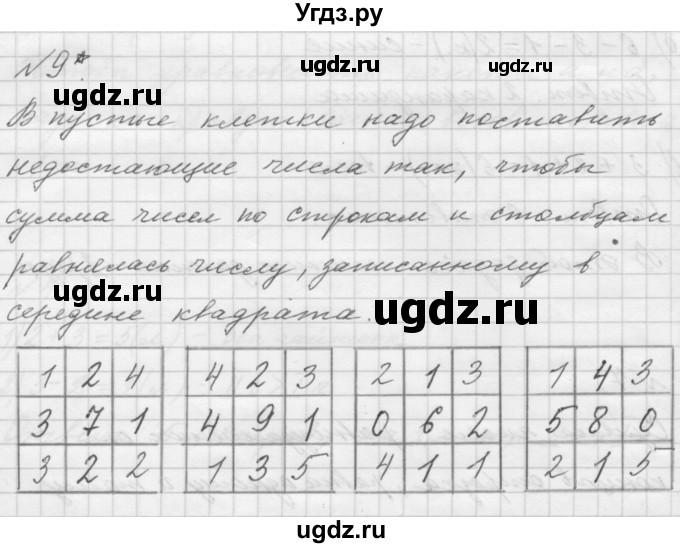 Угдз.ру
№9*.
ugdz.ru ugdz.ru
ugdz.ru
В пустые клетки надо поставить
недостающие числа так, чтобы
сумма чисел по строкам и столбцам
равнялась числу, записанному в
ugdz.ru ugdz.ru
середине квадрата.
1 2 4 4 2 3 2 1 3 1 4 3
3 7 1 4 9 1 0 6 2 5 8 0
3 2 2 1 3 5 4 1 1 2 1 5
ugdz.ru ugdz.ru
ugdz.ru